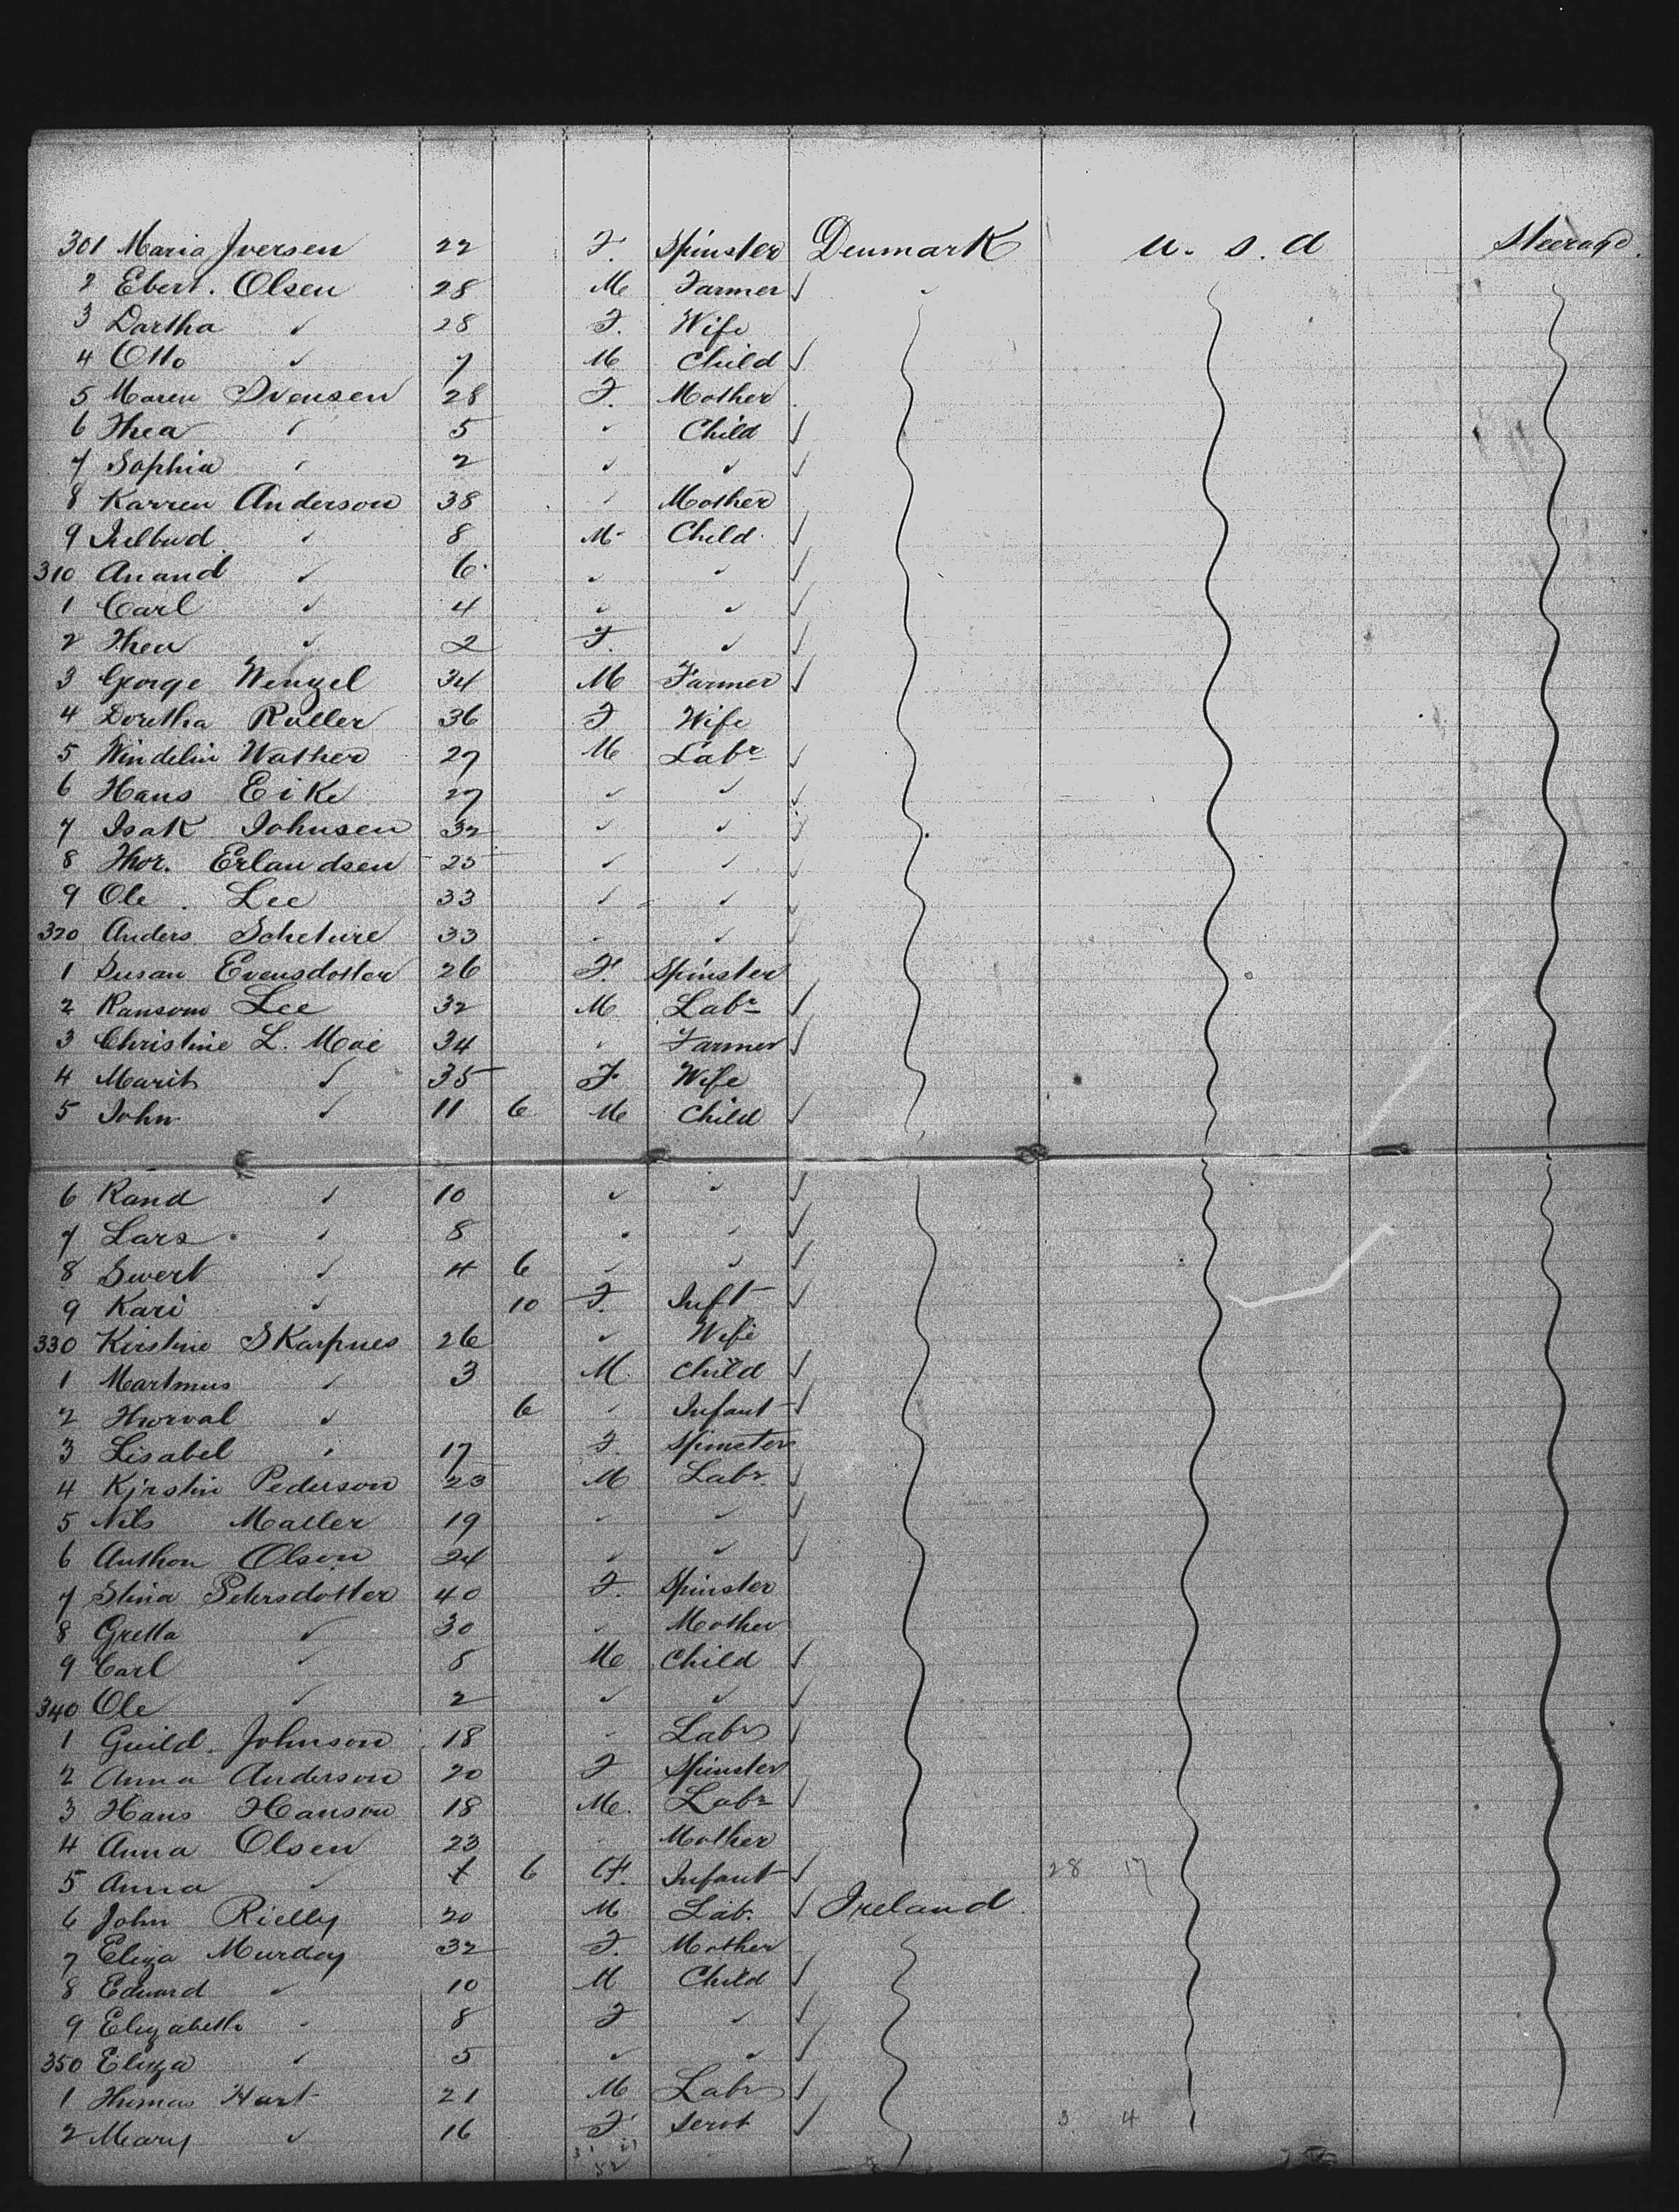 301 Maria Iversen 22 F. Spinster Denmark U. S. A Steerage.
2 Ebert. Olsen 28 M Farmer ✓ "
3 Dartha ✓ 28 F. Wife
4 Otto ✓ 7 M Child ✓
5 Maren Svensen 28 F. Mother
6 Thea ✓ 5 ✓ Child ✓
7 Sophia ✓ 2 ✓ ✓ ✓
8 Karren Anderson 38 ✓ Mother
9 ✓ 8 M Child ✓
310 Anand ✓ 6 ✓ ✓ ✓
1 Carl ✓ 4 ✓ ✓ ✓
2 Thea ✓ 2 F. ✓ ✓
3 George Wenzel 34 M Farmer ✓
4 Doretha Ruller 36 F Wife
5 Windelin Wather 27 M Labr ✓
6 Hans Eike 27 ✓ ✓ ✓
7 Isak Johnsen 32 ✓ ✓ ✓
8 Thor. Erlandsen 25 ✓ ✓ ✓
9 Ole Lee 33 ✓ ✓ ✓
320 Anders 33 ✓ ✓ ✓
1 Susan Evensdotter 26 F. Spinster
2 Ransom Lee 32 M Labr ✓
3 Christine L. Moe 34 ✓ Farmer ✓
4 Marit ✓ 35 F. Wife
5 John ✓ 11 6 M Child ✓
6 Rand ✓ 10 ✓ ✓ ✓
7 Lars ✓ 8 ✓ ✓ ✓
8 Swert ✓ 4 6 ✓ ✓ ✓
9 Kari ✓ 10 F. Inft ✓
330 Kirstine Skarpnes 26 ✓ Wife
1 Martmus ✓ 3 M. Child ✓
2 Thorval ✓ 6 ✓ Infant ✓
3 Lisabel ✓ 17 F. Spinster
4 Kirstin Pederson 23 M Labr ✓
5 Nils Maller 19 ✓ ✓ ✓
6 Anthon Olson 24 ✓ ✓ ✓
7 Stina Petersdotter 40 F. Spinster
8 Gretta ✓ 30 ✓ Mother
9 Carl ✓ 5 M Child ✓
340 Ole ✓ 2 ✓ ✓ ✓
1 Guild. Johnson 18 ✓ Labr ✓
2 Anna Anderson 20 F Spinster
3 Hans Hanson 18 M. Labr ✓
4 Anna Olsen 23 ✓ Mother
5 Anna ✓ 6 F. Infant ✓ 28 17
6 John Rielly 20 M Lab. ✓ Ireland
7 Eliza Murdoy 32 F. Mother
8 Edward ✓ 10 M Child ✓
9 Elizabeth ✓ 8 F ✓ ✓
350 Eliza ✓ 5 ✓ ✓ ✓
1 Thomas Hart 21 M Labr ✓
2 Mary ✓ 16 F Servt ✓ 3 4
31 21
52